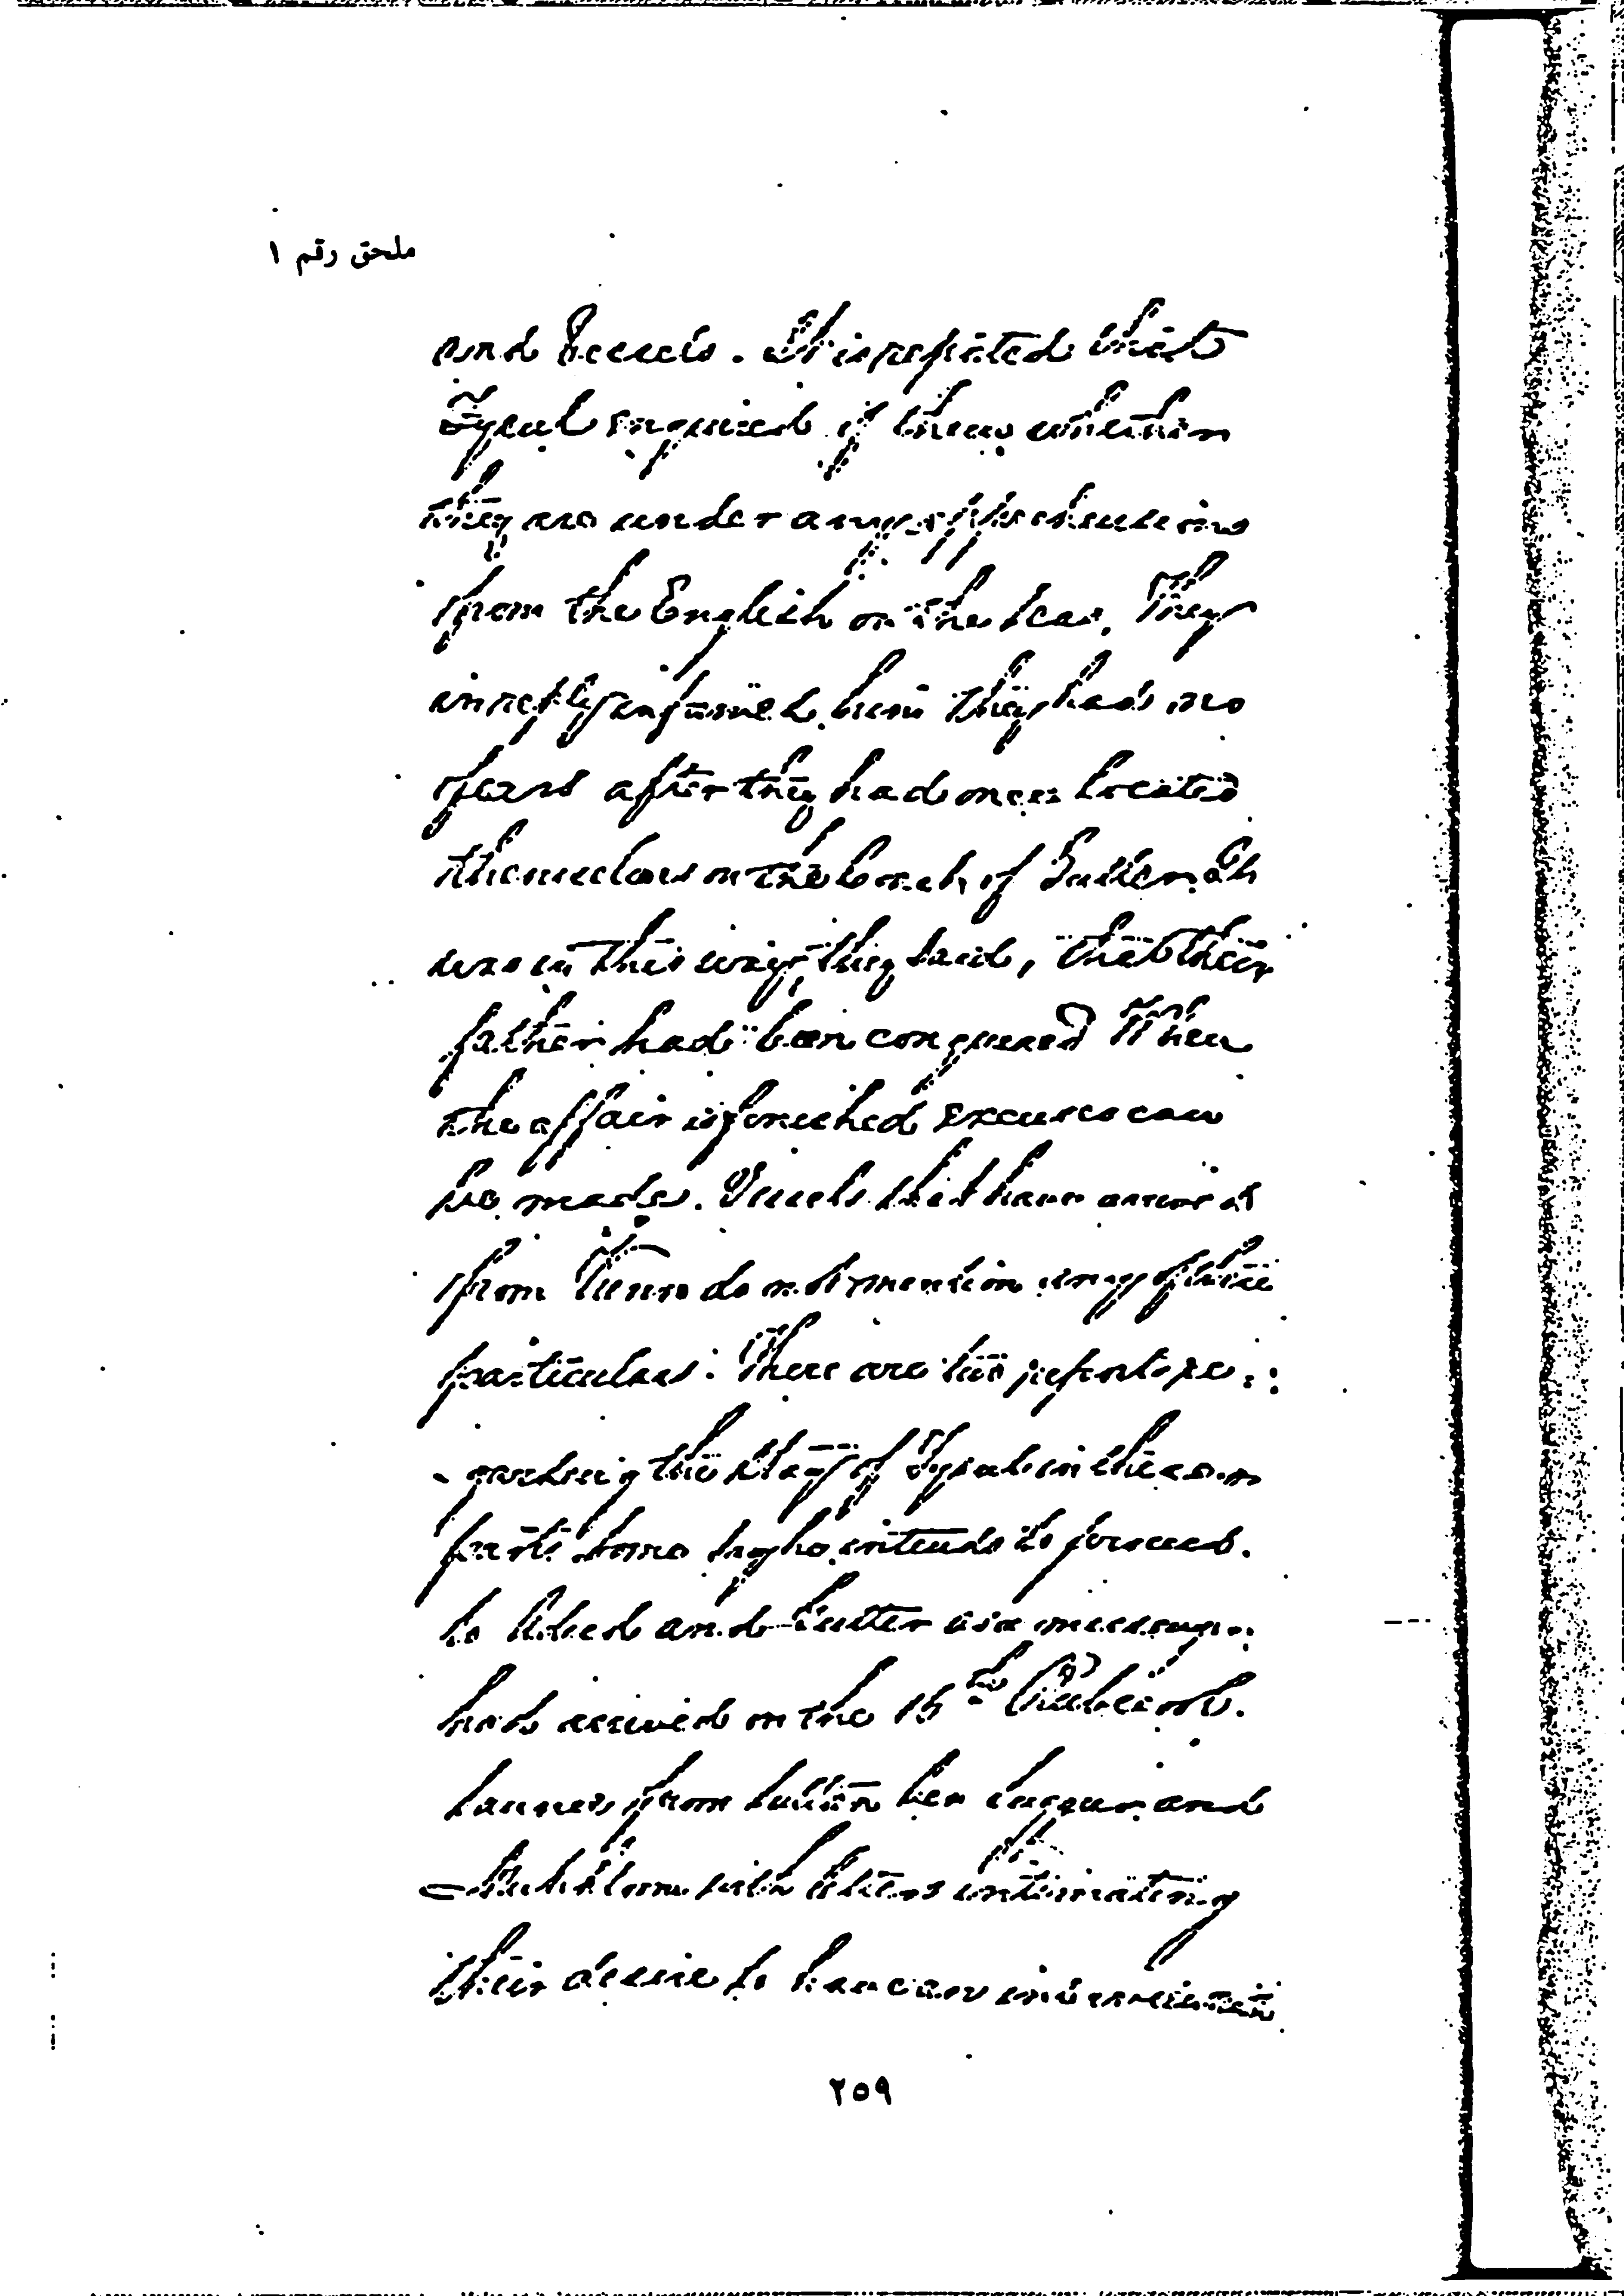 ملحق رقم ١
and Vessels. It is reported that
Fysul enquired of them whether
they are under any apprehensions
from the English on the Sea. They
in reply informed him they had no
fears after they had once located
themselves on the Coast of
was in this way, they said, that their
father had been conquered When
the affair is finished excuses can
be made. Vessels that have arrived
from there do not mention any of these
particulars. There are two reports re-
- garding the stay of Fysul in these
parts some say he intends to proceed
to and as a
had arrived on the 15th
from Sultan bin and
with letters intimating
their desire to have an
٢٥٩